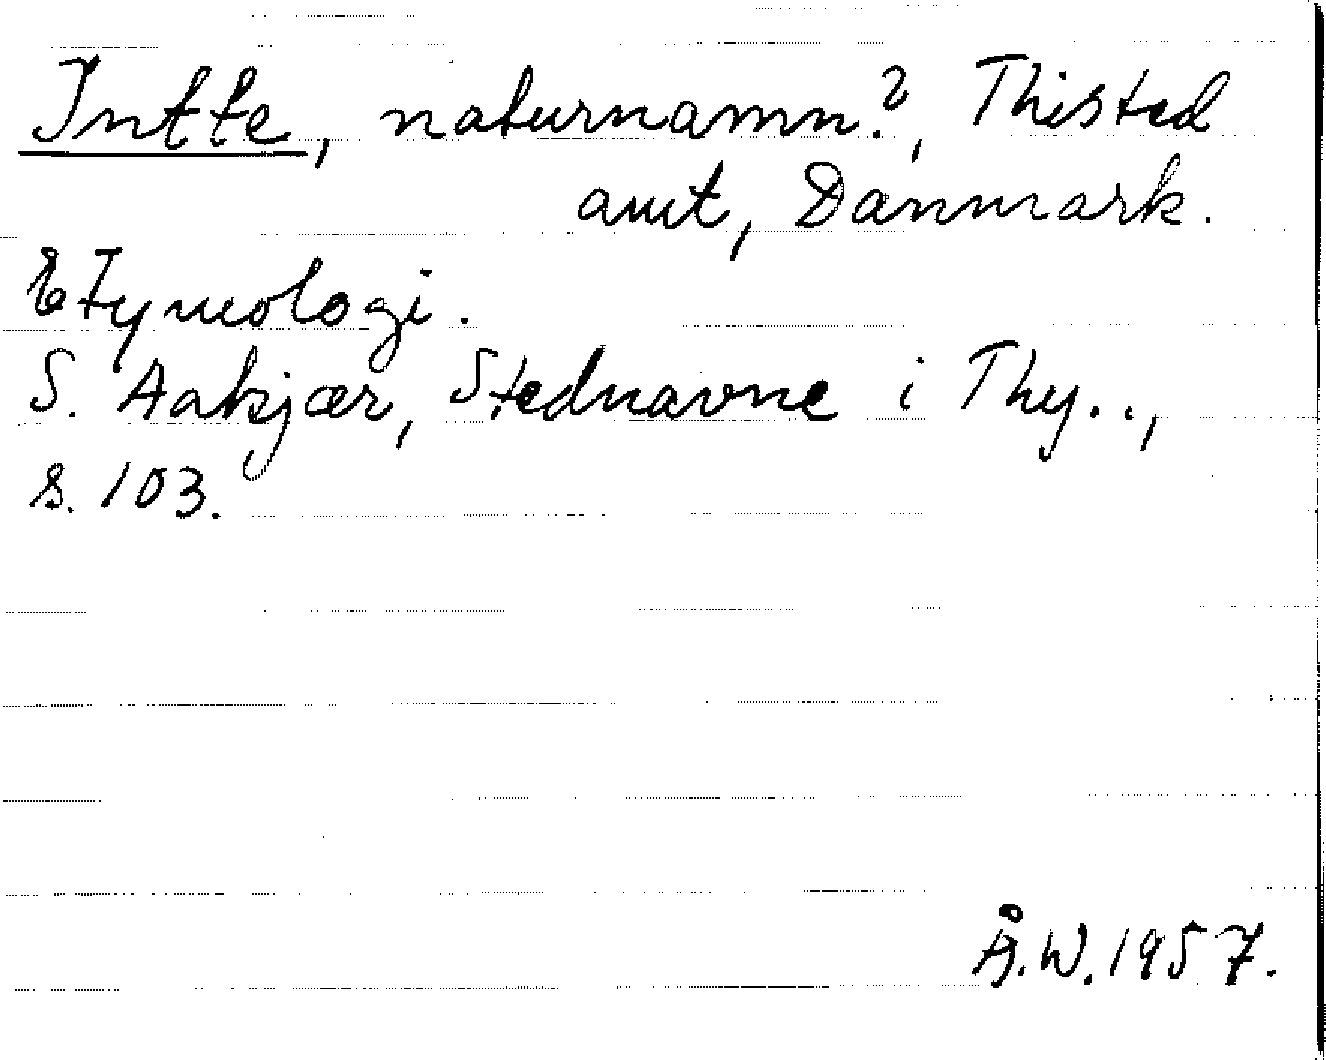 Intte, naturnamn?, Thisted
amt, Danmark.
Etymologi.
S. Aakjær, Stednavne i Thy..,
s. 103.
Å.W. 1957.